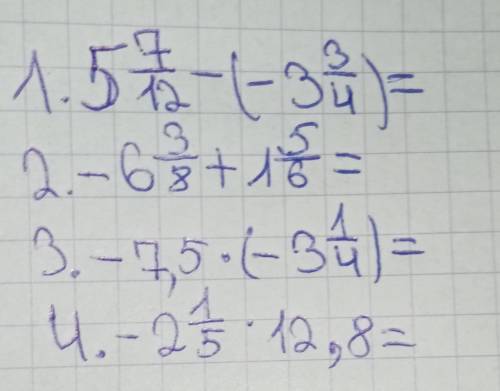 1. 5 7/12 - (-3 3/4) =
2. -6 3/8 + 1 5/6 =
3. -7,5 · (-3 1/4) =
4. -2 1/5 · 12,8 =